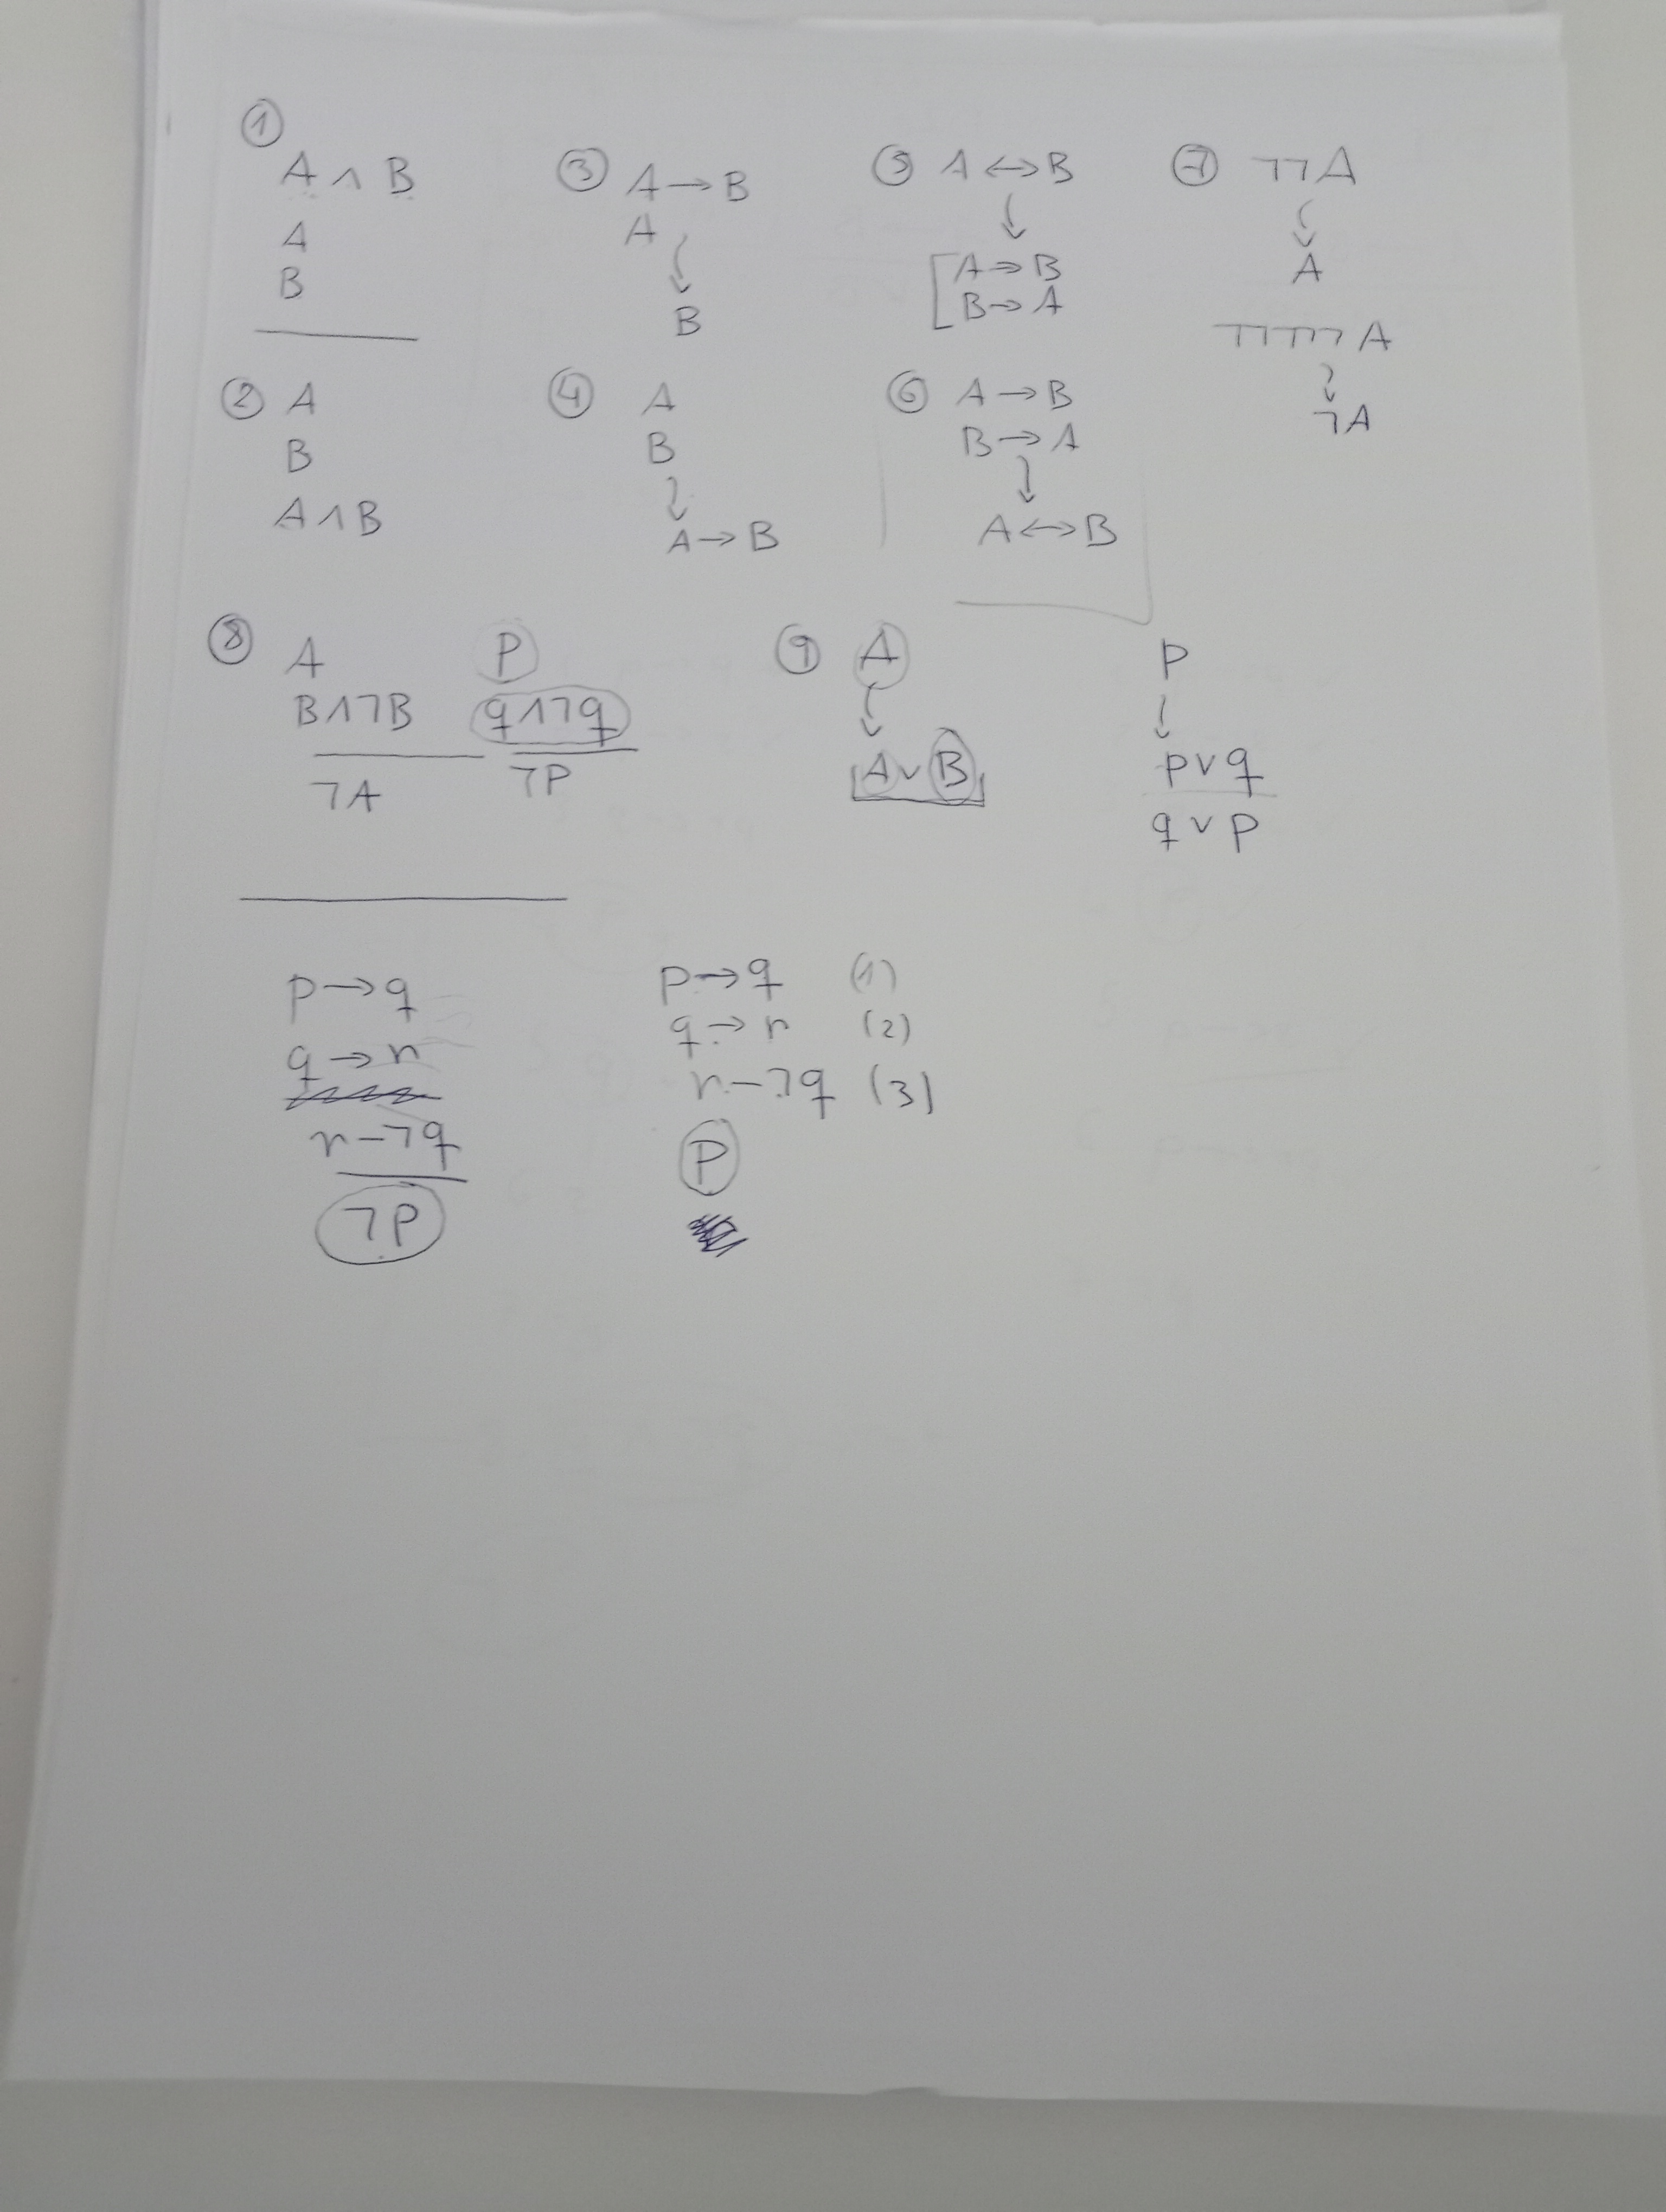 ①
A ∧ B
A
B
② A
B
A ∧ B
③ A → B
A
↓
B
④ A
B
↓
A → B
⑤ A ↔ B
↓
A → B
B → A
⑥ A → B
B → A
↓
A ↔ B
⑦ ¬¬A
↓
A
¬¬¬¬¬A
↓
¬A
⑧ A
B∧¬B
¬A
P
q∧¬q
¬P
⑨ A
↓
A ∨ B
P
↓
p ∨ q
q ∨ p
p → q
q → r
r → ¬q
¬P
p → q (1)
q → r (2)
r → ¬q (3)
P